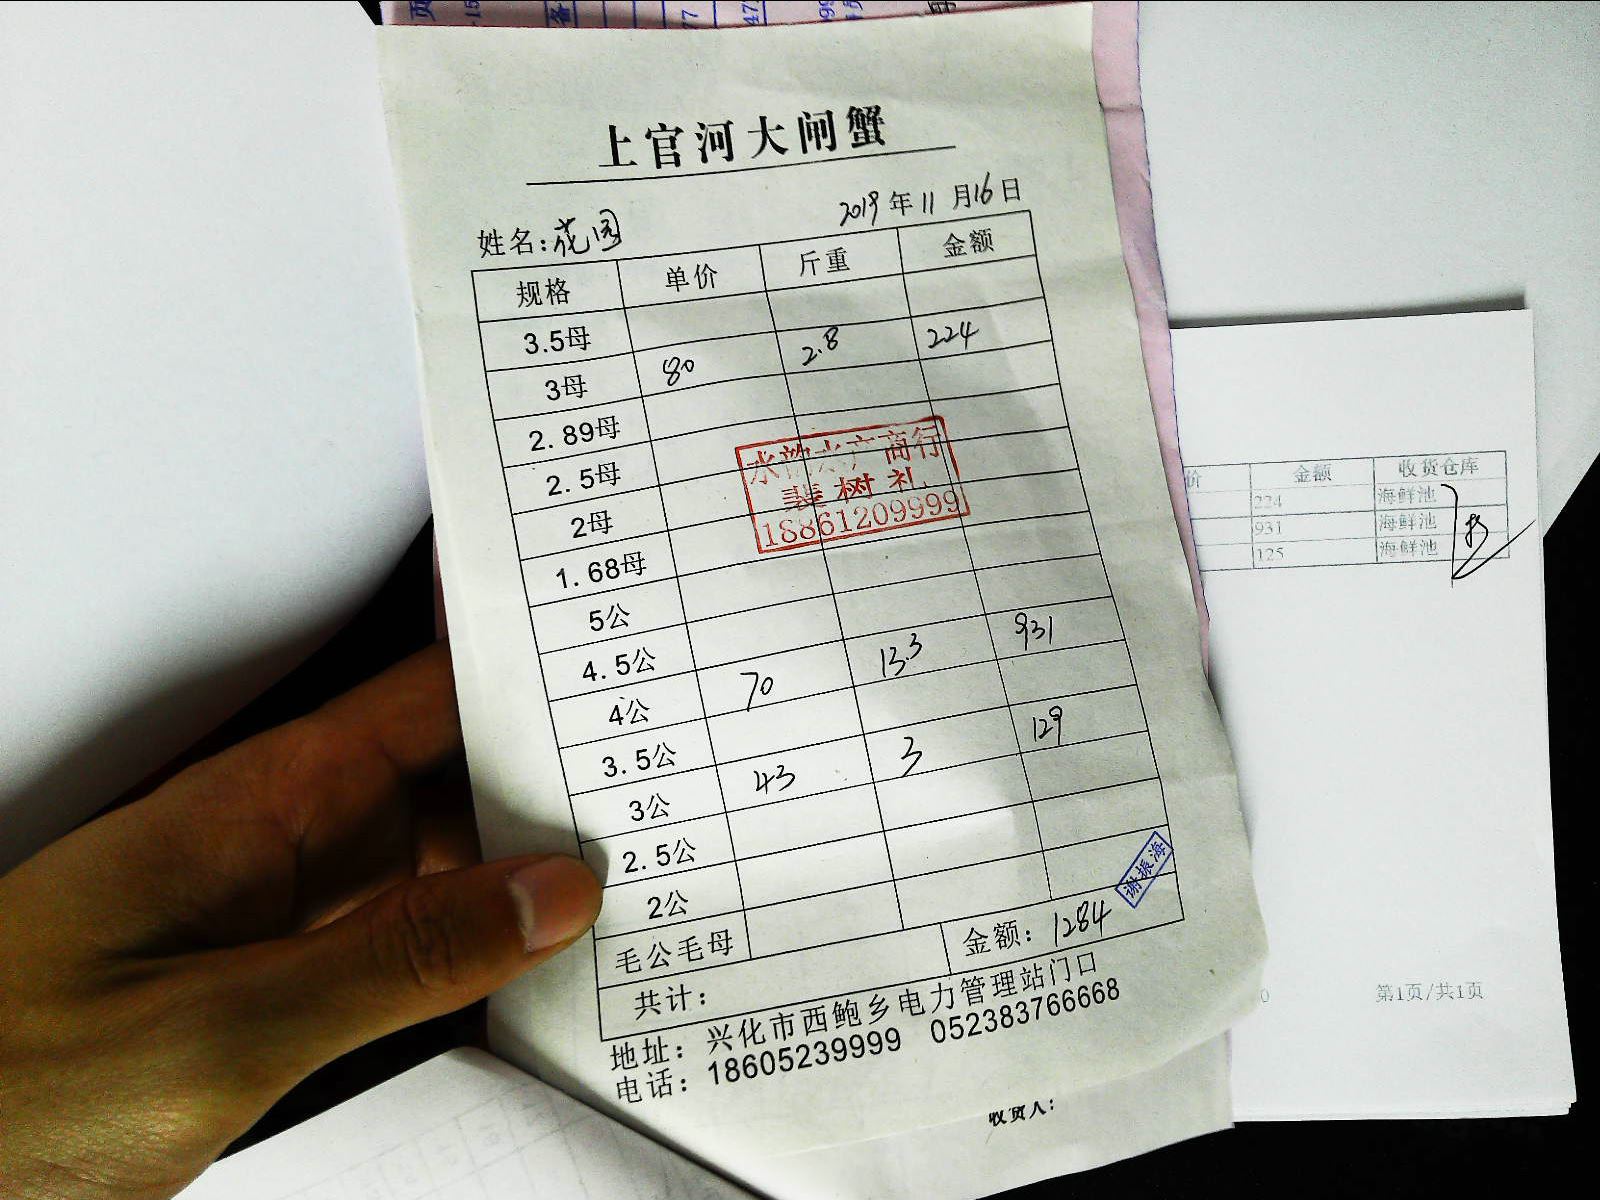 上官河大闸蟹
姓名:花园 2019年11月16日
规格 单价 斤重 金额
3.5母
3母 80 2.8 224
2.89母
2.5母
2母
1.68母
5公
4.5公
4公 70 13.3 931
3.5公
3公 43 3 129
2.5公
2公
毛公毛母
共计: 金额: 1284
地址: 兴化市西鲍乡电力管理站门口
电话: 18605239999 052383766668
水韵水产商行
裴树礼
18861209999
谢振海
收货人:
价 金额 收货仓库
224 海鲜池
931 海鲜池
125 海鲜池
第1页/共1页